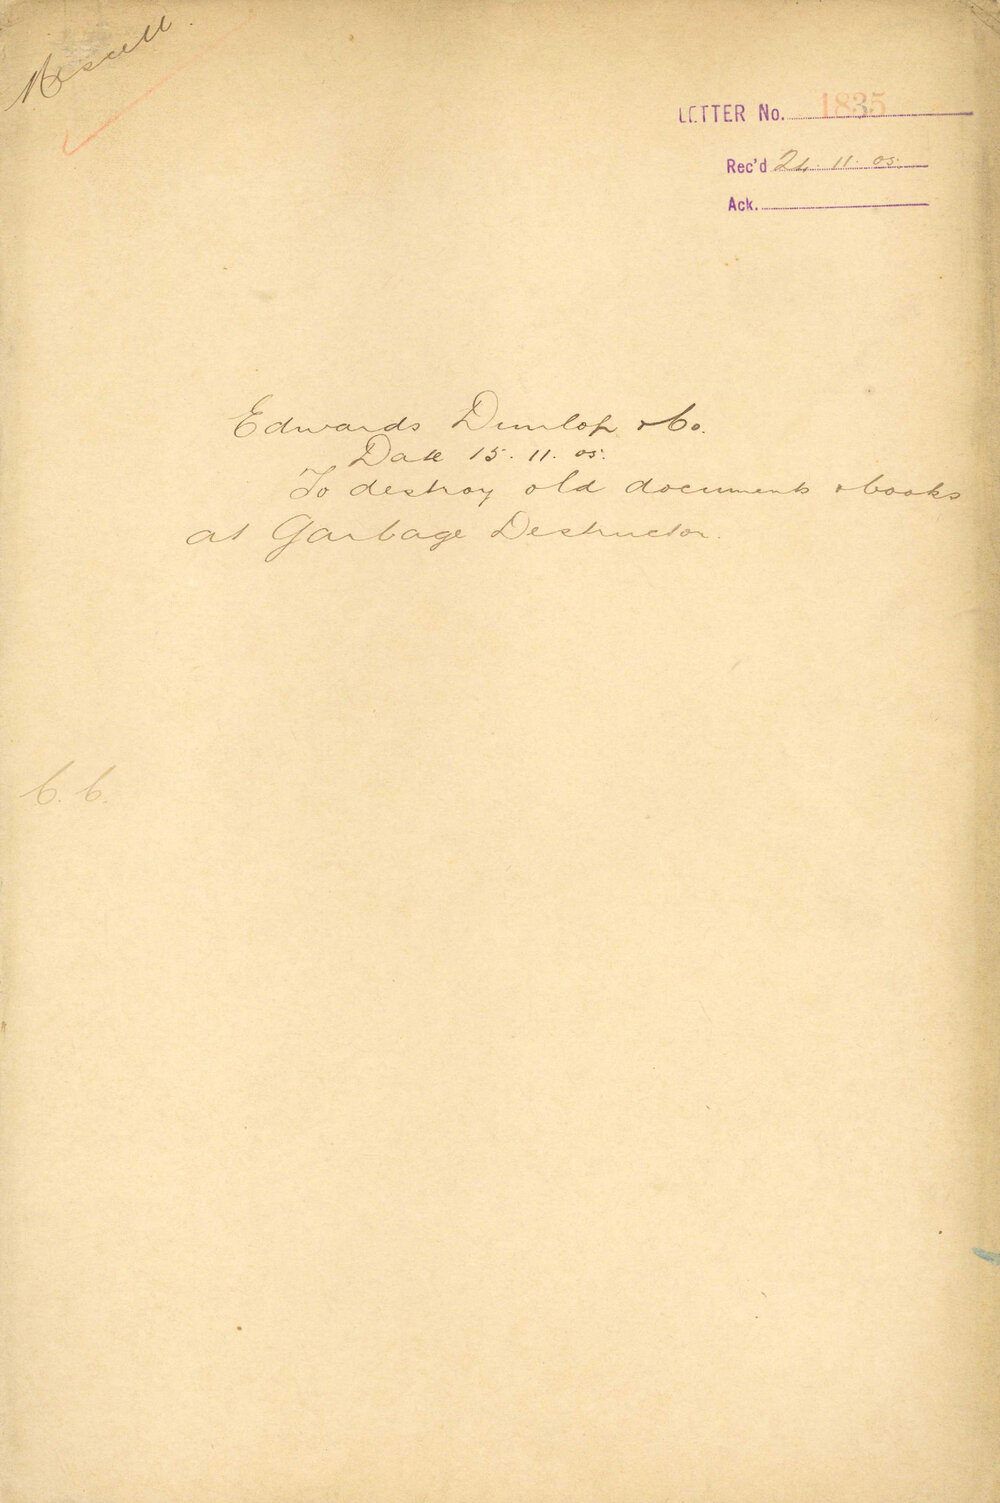 Miscell.
LETTER No. 1835
Rec'd 24. 11. 05.
Ack.
Edwards Dunlop & Co.
Date 15. 11. 05.
To destroy old documents & books
at Garbage Destructor.
C. C.